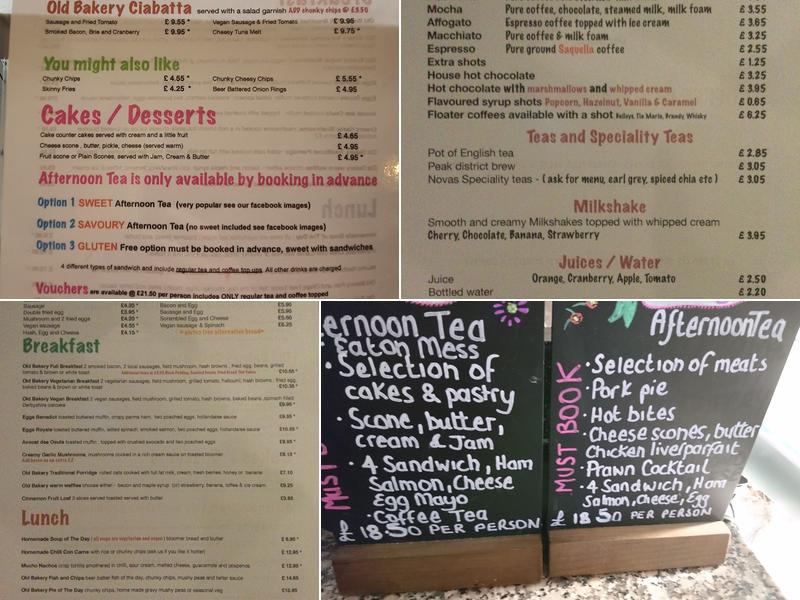 Old Bakery Ciabatta served with a salad garnish Add chunky chips @ £3.50
Sausage and Fried Tomato £ 9.55 * Vegan Sausage & Fried Tomato £ 9.95
Smoked Bacon, Brie and Cranberry £ 9.95 * Cheesy Tuna Melt £ 9.75 *
You might also like
Chunky Chips £ 4.55 * Chunky Cheesy Chips £ 5.55 *
Skinny Fries £ 4.25 * Beer Battered Onion Rings £ 4.95
Cakes / Desserts
Cake counter cakes served with cream and a little fruit £ 4.65
Cheese scone, butter, pickle, cheese (served warm) £ 4.95
Fruit scone or Plain Scones, served with Jam, Cream & Butter £ 4.95 *
Afternoon Tea is only available by booking in advance
Option 1 SWEET Afternoon Tea (very popular see our facebook images)
Option 2 SAVOURY Afternoon Tea (no sweet included see facebook images)
Option 3 GLUTEN Free option must be booked in advance, sweet with sandwiches
4 different types of sandwich and include regular tea and coffee top ups. All other drinks are charged
Vouchers are available @ £21.50 per person includes ONLY regular tea and coffee topped
Mocha Pure coffee, chocolate, steamed milk, milk foam £ 3.55
Affogato Espresso coffee topped with Ice cream £ 3.65
Macchiato Pure coffee & milk foam £ 3.25
Espresso Pure ground Saquella coffee £ 2.55
Extra shots £ 1.25
House hot chocolate £ 3.25
Hot chocolate with marshmallows and whipped cream £ 3.95
Flavoured syrup shots Popcorn, Hazelnut, Vanilla & Caramel £ 0.65
Floater coffees available with a shot Baileys, Tia Maria, Brandy, Whisky £ 6.25
Teas and Speciality Teas
Pot of English tea £ 2.85
Peak district brew £ 3.05
Novas Speciality teas - ( ask for menu, earl grey, spiced chia etc ) £ 3.05
Milkshake
Smooth and creamy Milkshakes topped with whipped cream
Cherry, Chocolate, Banana, Strawberry £ 3.95
Juices / Water
Juice Orange, Cranberry, Apple, Tomato £ 2.50
Bottled water £ 2.20
Sausage £4.95 * Bacon and Egg £5.95
Double fried egg £3.95 * Sausage and Egg £5.95
Mushroom and 2 fried eggs £4.20 * Scrambled Egg and Cheese £5.60
Vegan sausage £4.55 * Vegan sausage & Spinach £6.25
Hash, Egg and Cheese £4.15 *
Breakfast
Old Bakery Full Breakfast 2 smoked bacon, 2 local sausages, field mushroom, hash browns, fried egg, beans, grilled
tomato & brown or white toast £10.55 *
Old Bakery Vegetarian Breakfast 2 vegetarian sausages, field mushroom, grilled tomato, halloumi, hash browns, fried egg,
baked beans & brown or white toast £10.35 *
Old Bakery Vegan Breakfast 2 vegan sausages, field mushroom, grilled tomato, hash browns, baked beans, spinach filled
Derbyshire oatcake £9.95 *
Eggs Benedict toasted muffin, crispy parma ham, two poached eggs, hollandaise sauce £9.95 *
Eggs Royale toasted muffin, wilted spinach, smoked salmon, two poached eggs, hollandaise sauce £10.55 *
Avocat dse Oeufs toasted muffin, topped with crushed avocado and two poached eggs £9.95 *
Creamy Garlic Mushrooms, mushrooms cooked in a rich cream sauce on toasted bloomer £8.15 *
Old Bakery Traditional Porridge rolled oats cooked with full fat milk, cream, fresh berries, honey or banana £7.10
Old Bakery warm waffles choose either - bacon and maple syrup (or) strawberry, banana, toffee & ice cream £9.25
Cinnamon Fruit Loaf 3 slices served toasted served with butter £3.95
Lunch
Homemade Soup of The Day ( all soups are vegetarian and vegan ) bloomer bread and butter £ 6.95 *
Homemade Chili Con Carne with rice or chunky chips (ask us if you like it hotter) £ 12.95 *
Mucho Nachos crisp tortilla smothered in chilli, sour cream, melted cheese, guacamole and jalapenos £ 12.95 *
Old Bakery Fish and Chips beer batter fish of the day, chunky chips, mushy peas and tartar sauce £ 14.65
Old Bakery Pie of The Day chunky chips, home made gravy mushy peas or seasonal veg
ernoon Tea
Eaton Mess
· Selection of
cakes & pastry
· Scone, butter,
cream & Jam
· 4 Sandwich, Ham
Salmon, Cheese
Egg Mayo
· Coffee Tea
18.50 PER PERSON
AfternoonTea
MUST BOOK
· Selection of meats
· Pork pie
· Hot bites
· Cheese scones, butter
Chicken liverparfait
· Prawn Cocktail
· 4 Sandwich, Ham
Salmon, Cheese, Egg
18.50 PER PERSON